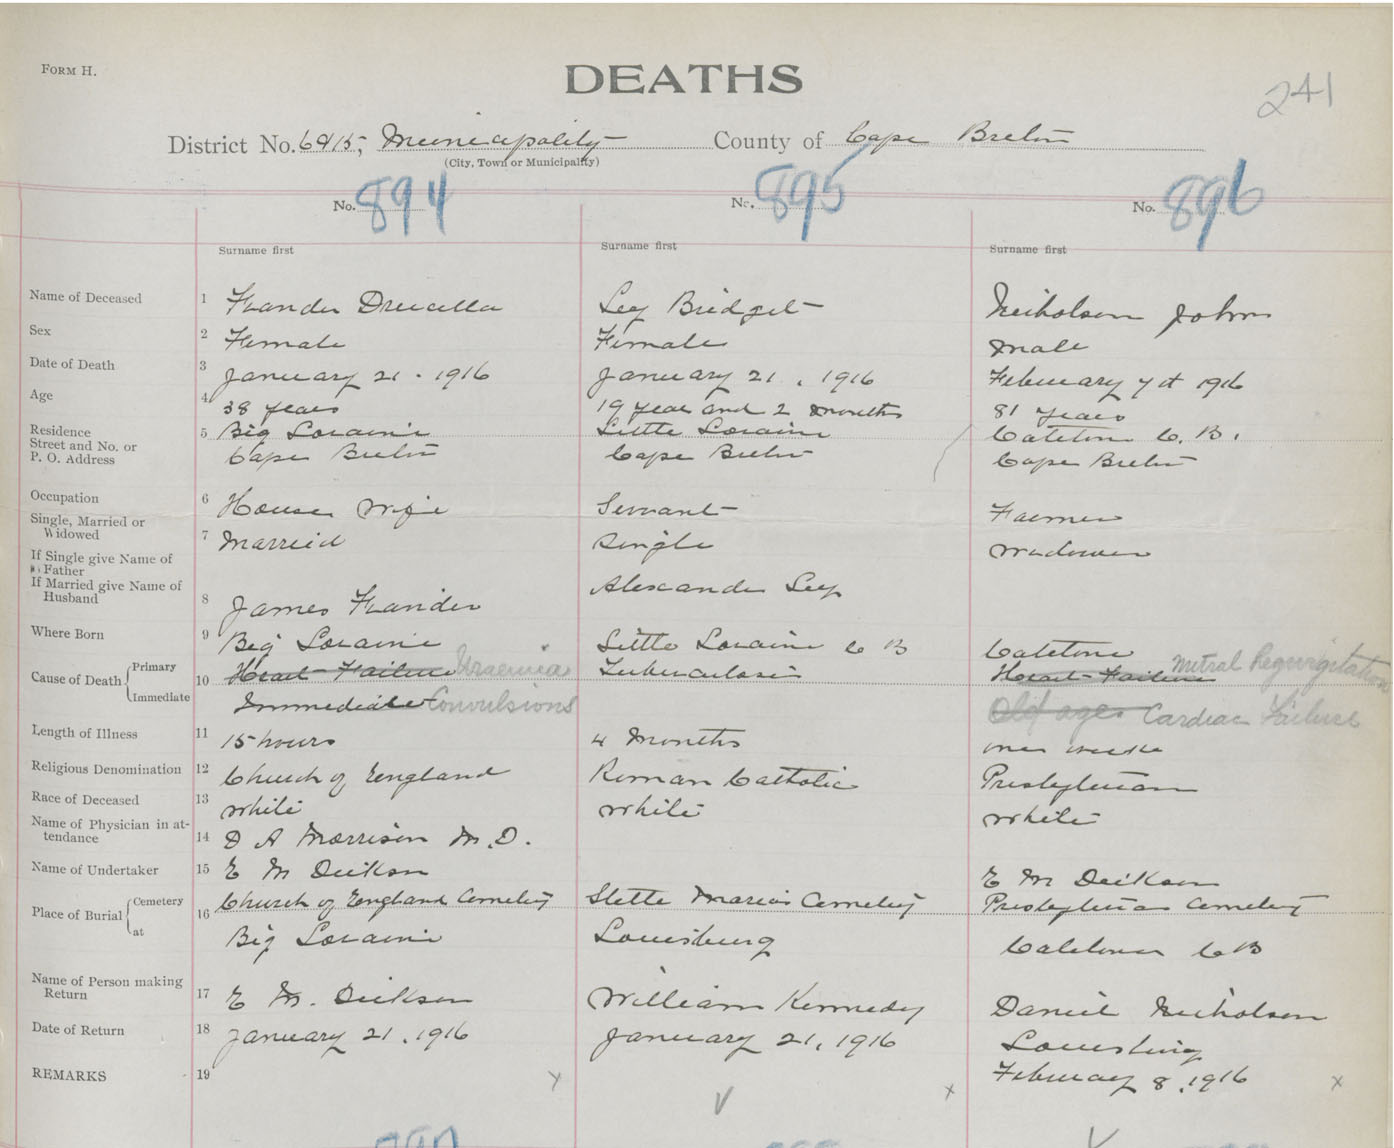 FORM H.
DEATHS
241
District No. 6415, Municipality County of Cape Breton
(City, Town or Municipality)
No. 894 No. 895 No. 896
Surname first Surname first Surname first
Name of Deceased 1 Drucella Bridget Nicholson John
Sex 2 Female Female Male
Date of Death 3 January 21. 1916 January 21, 1916 February 7th 1916
Age 4 38 years 19 year and 2 months 81 years
Residence 5 Big Loraine Little Loraine Catalone C. B.
Street and No. or
P. O. Address Cape Breton Cape Breton Cape Breton
Occupation 6 House Wife Servant Farmer
Single, Married or
Widowed 7 Married Single Widower
If Single give Name of
Father
If Married give Name of
Husband 8 James Alexander
Where Born 9 Big Loraine Little Loraine C B Catalone
Cause of Death Primary 10 Heart Failure Uraemia Tuberculosis Heart Failure Mitral Regurgitation
Immediate Immediate Convulsions Old age Cardiac Failure
Length of Illness 11 15 hours 4 Months one week
Religious Denomination 12 Church of England Roman Catholic Presbyterian
Race of Deceased 13 White White White
Name of Physician in at-
tendance 14 D A Morrison M.D.
Name of Undertaker 15 E M Dickson E M Dickson
Place of Burial Cemetery 16 Church of England Cemetery Stella Maris Cemetery Presbyterian Cemetery
at Big Loraine Louisburg Catalone C B
Name of Person making
Return 17 E M. Dickson William Kennedy Daniel Nicholson
Date of Return 18 January 21, 1916 January 21, 1916 Louisburg
REMARKS 19 February 8, 1916